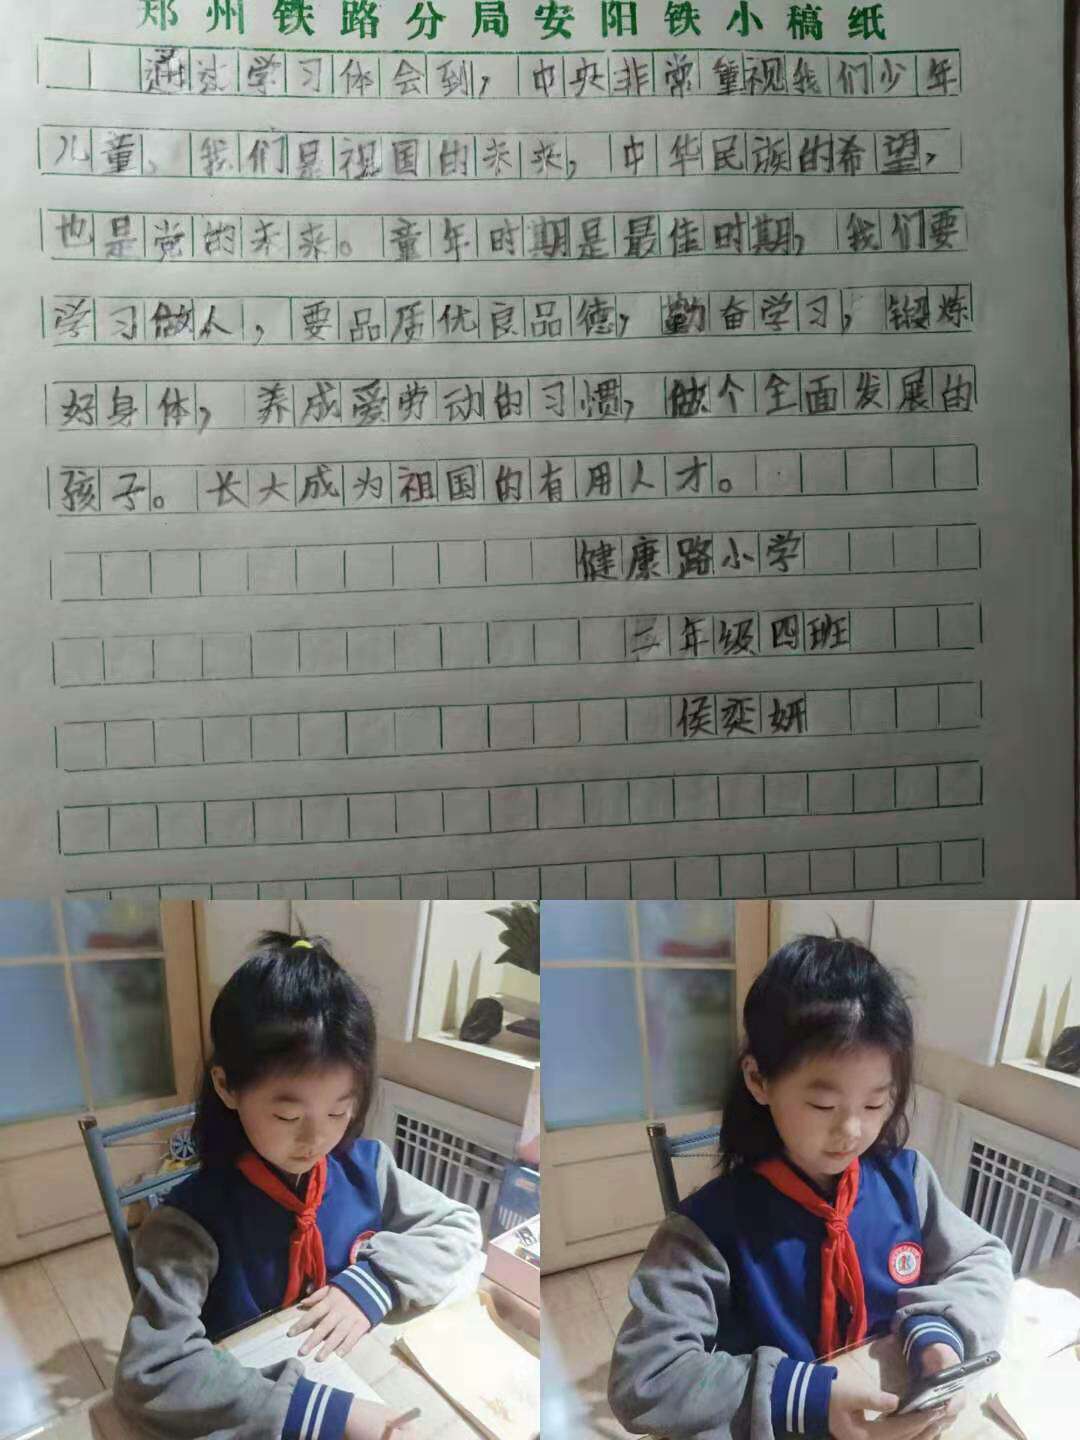 郑州铁路分局安阳铁小稿纸
通过学习体会到，中央非常重视我们少年
儿童、我们是祖国的未来，中华民族的希望，
也是党的未来。童年时期是最佳时期，我们要
学习做人，要品质优良品德，勤奋学习，锻炼
好身体，养成爱劳动的习惯，做个全面发展的
孩子。长大成为祖国的有用人才。
健康路小学
二年级四班
侯奕妍